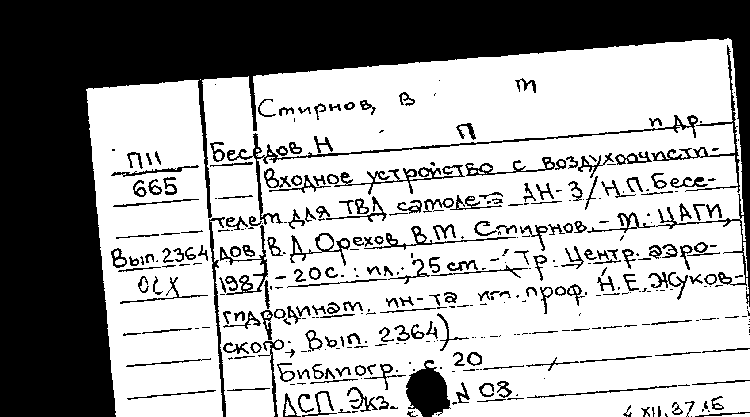 Смирнов, В М
П11 Беседов, Н П и др.
665 Входное устройство с воздухоочисти-
телем для ТВД самолета АН-3/Н.П.Бесе-
Вып.2364 дов, В.Д.Орехов, В.М.Смирнов.-М.: ЦАГИ,
ОСХ 1987.-20с.: ил.; 25см.-(Тр. Центр. аэро-
гидродинам. ин-та им. проф. Н.Е.Жуков-
ского; Вып. 2364).
Библиогр.: с. 20
ДСП. Экз. N 03.